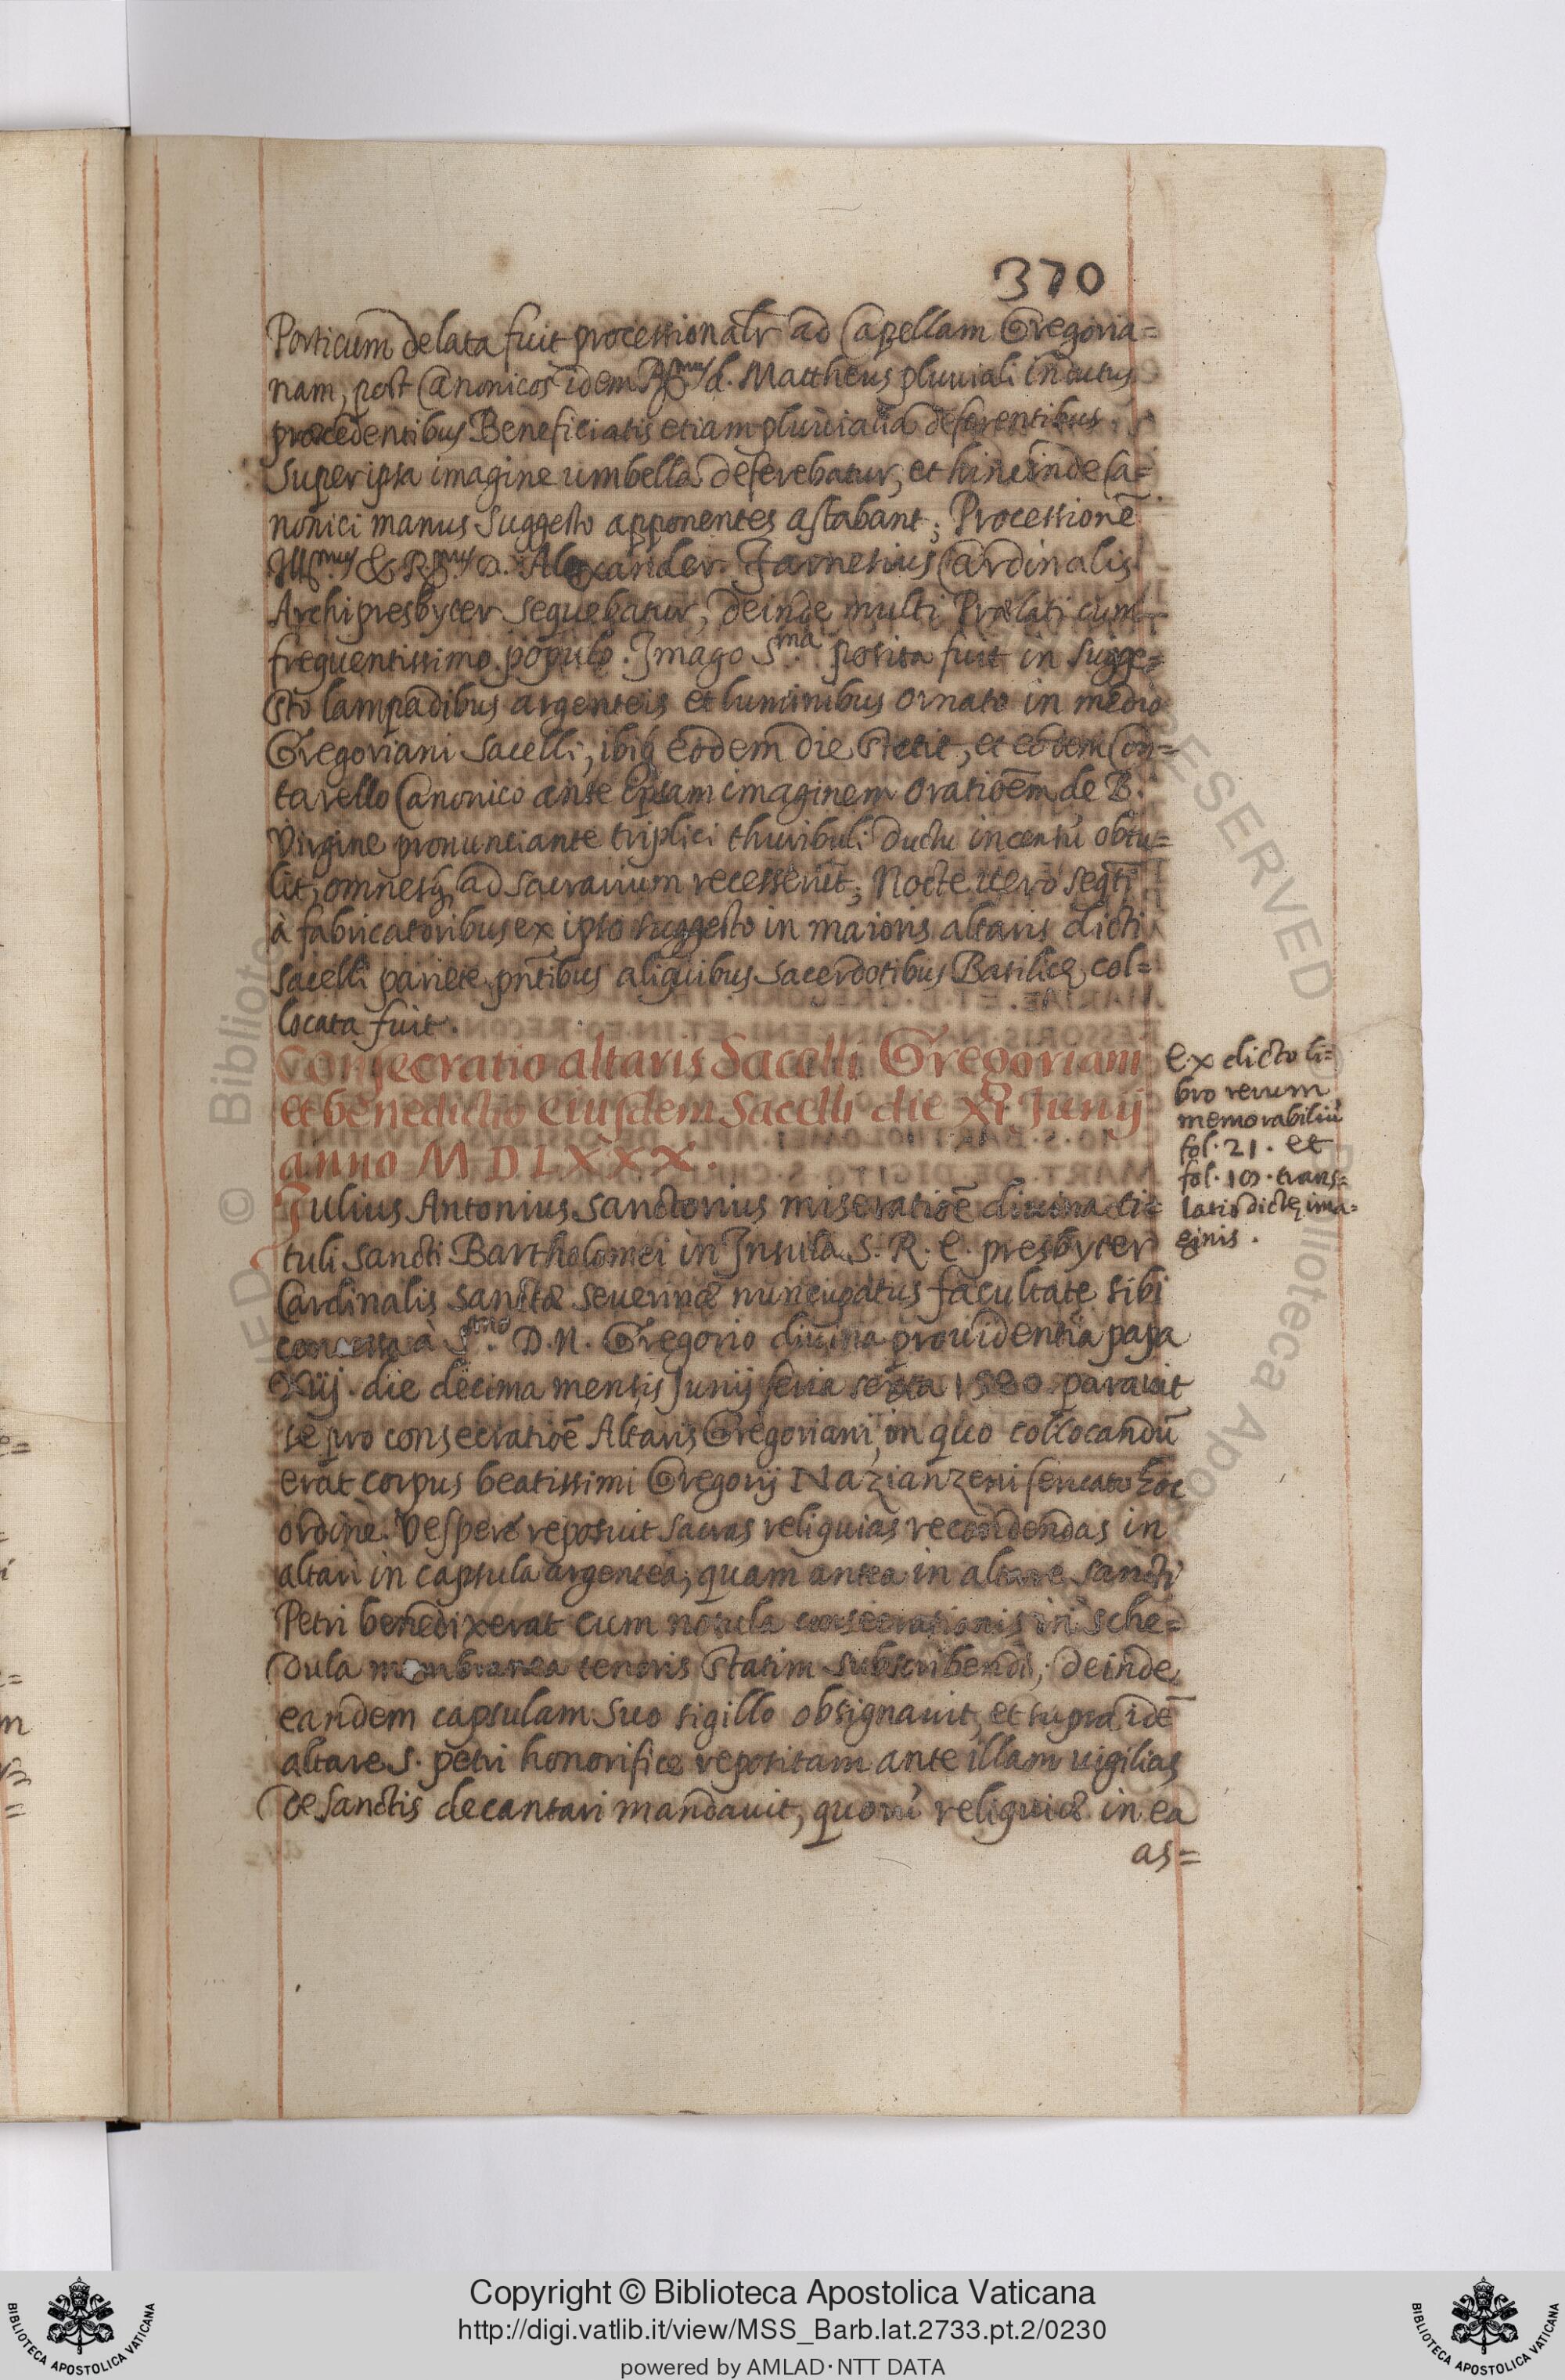 370
Porticum delata fuit processionalr ad Capellam Gregoria=
nam, post Canonicos idem R.mus d. Mattheus pluuiali indutus
præcedentibus Beneficiatis etiam pluuialia deferentibus
Super ipsa imagine umbella deferebatur, et hinc inde Ca=
nonici manus Suggesto apponentes astabant; Processionē
Ill.mus & R.mus D. Alexander Farnesius Cardinalis
Archipresbyter sequebatur, deinde multi Prælati cum
frequentissimo populo. Imago S.ma posita fuit in sugge=
sto lampadibus argenteis et luminibus ornato in medio
Gregoriani Sacelli, ibiq; eodem die stetit, et eodem Con=
tarello Canonico ante ipsam imaginem oratioēm de B.
Virgine pronunciante triplici thuribuli ductu incensū obtu=
lit, omnesq; ad sacrarium recesserūt; Nocte uero seqti
à fabricatoribus ex ipso suggesto in maioris altaris dicti
sacelli pariete pntibus aliquibus Sacerdotibus Basilicę col=
locata fuit.
Consecratio altaris Sacelli Gregoriani
et benedictio eiusdem Sacelli die XI Junij
anno M D L X X X.
Julius Antonius Sanctorius miseratioē diuina ti=
tuli Sancti Bartholomei in Insula S. R. E. presbyter
Cardinalis Sanctæ Seuerinæ nuncupatus facultate sibi
concessa à S.mo D. N. Gregorio diuina prouidentia papa
Xiij. die decima mensis Junij feria sexta 1580 parauit
se pro consecratioē Altaris Gregoriani, in quo collocandū
erat corpus beatissimi Gregorij Nazianzeni seruato hoc
ordine. Vespere reposuit sacras reliquias recondendas in
altari in capsula argentea, quam antea in altare Sancti
Petri benedixerat cum notula consecrationis in sche=
dula membranea tenoris statim subscribendi; deinde
eandem capsulam suo sigillo obsignauit, et supra idē
altare S. petri honorifice repositam ante illam uigilias
de Sanctis decantari mandauit, quorū reliquiæ in ea
as=
ex dicto li=
bro rerum
memorabiliū
fol. 21. et
fol. 10. trans=
latio dictę ima=
ginis.
Copyright © Biblioteca Apostolica Vaticana
http://digi.vatlib.it/view/MSS_Barb.lat.2733.pt.2/0230
powered by AMLAD·NTT DATA
BIBLIOTECA APOSTOLICA VATICANA
BIBLIOTECA APOSTOLICA VATICANA